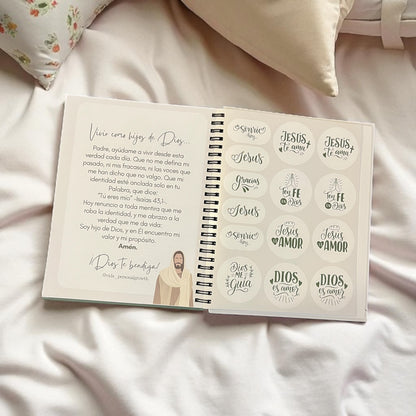 Vivir como hijos de Dios...
Padre, ayúdame a vivir desde esta
verdad cada día. Que no me defina mi
pasado, ni mis fracasos, ni las voces que
me han dicho que no valgo. Que mi
identidad esté anclada solo en tu
Palabra, que dice:
"Tú eres mío" -Isaías 43:1-
Hoy renuncio a toda mentira que me
roba la identidad, y me abrazo a la
verdad que me da vida:
Soy hijo de Dios, y en Él encuentro mi
valor y mi propósito.
Amén.
¡Dios te bendiga!
sonríe
Jesús
Gracias
Jesús
sonríe
Dios mi Guía
JESÚS te ama
JESÚS te ama
Ten FE en Dios
Ten FE en Dios
Jesús es AMOR
Jesús es AMOR
DIOS es amor
DIOS es amor